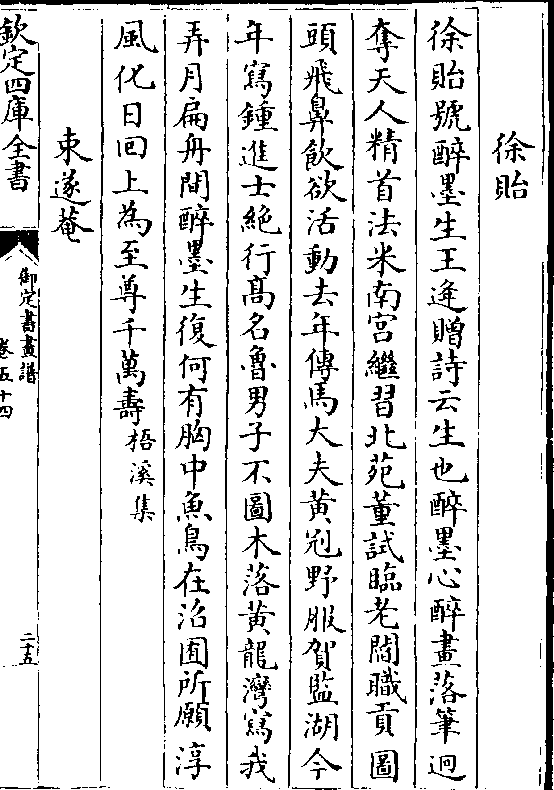 徐貽
徐貽號醉墨生王逢贈詩云生也醉墨心醉畫落筆迥
奪天人精首法米南宫繼習北苑董試臨老閻職貢圖
頭飛鼻飲欲活動去年傳馬大夫黄冠野服賀監湖今
年寫鍾進士絶行髙名魯男子不圖木落黄龍灣寫我
弄月扁舟間醉墨生復何有胸中魚鳥在沼囿所願淳
風化日回上為至尊千萬壽梧溪集
束遂菴
欽定四庫全書
御定書畫譜
卷五十四
二十五